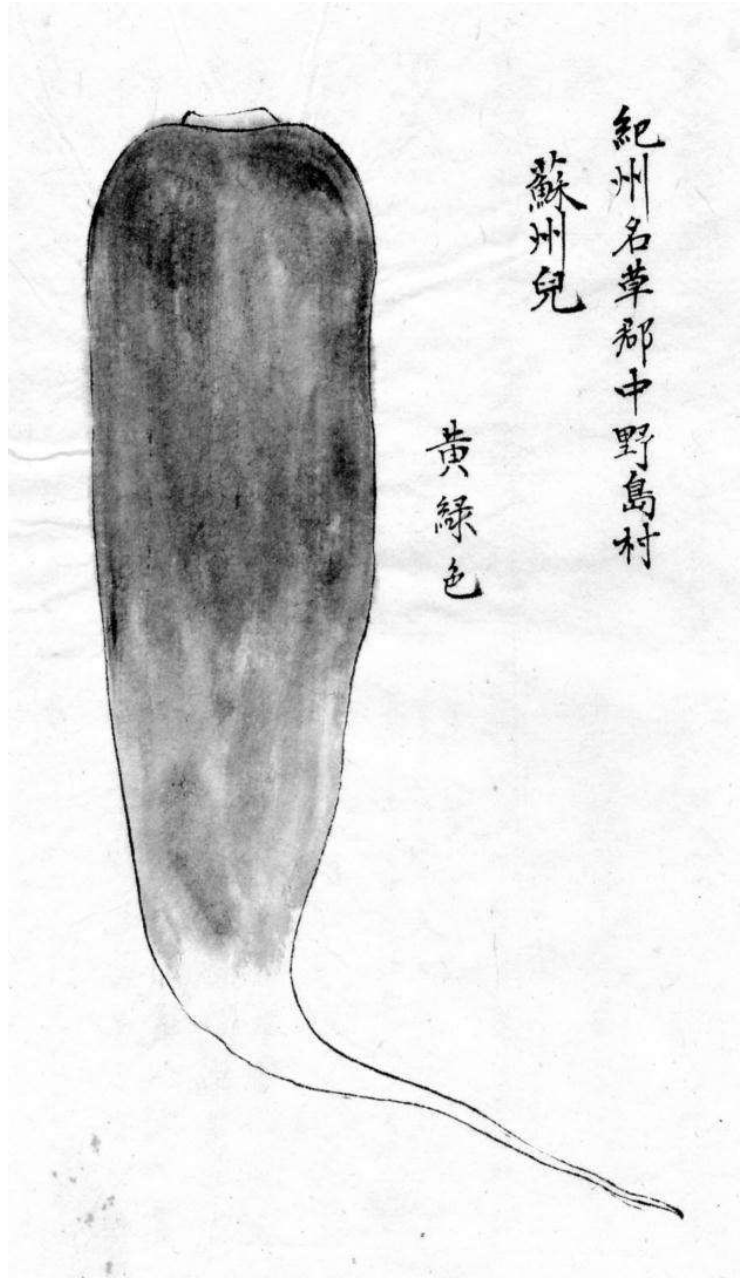 紀州名草郡中野島村
蘇州兒
黄緑色